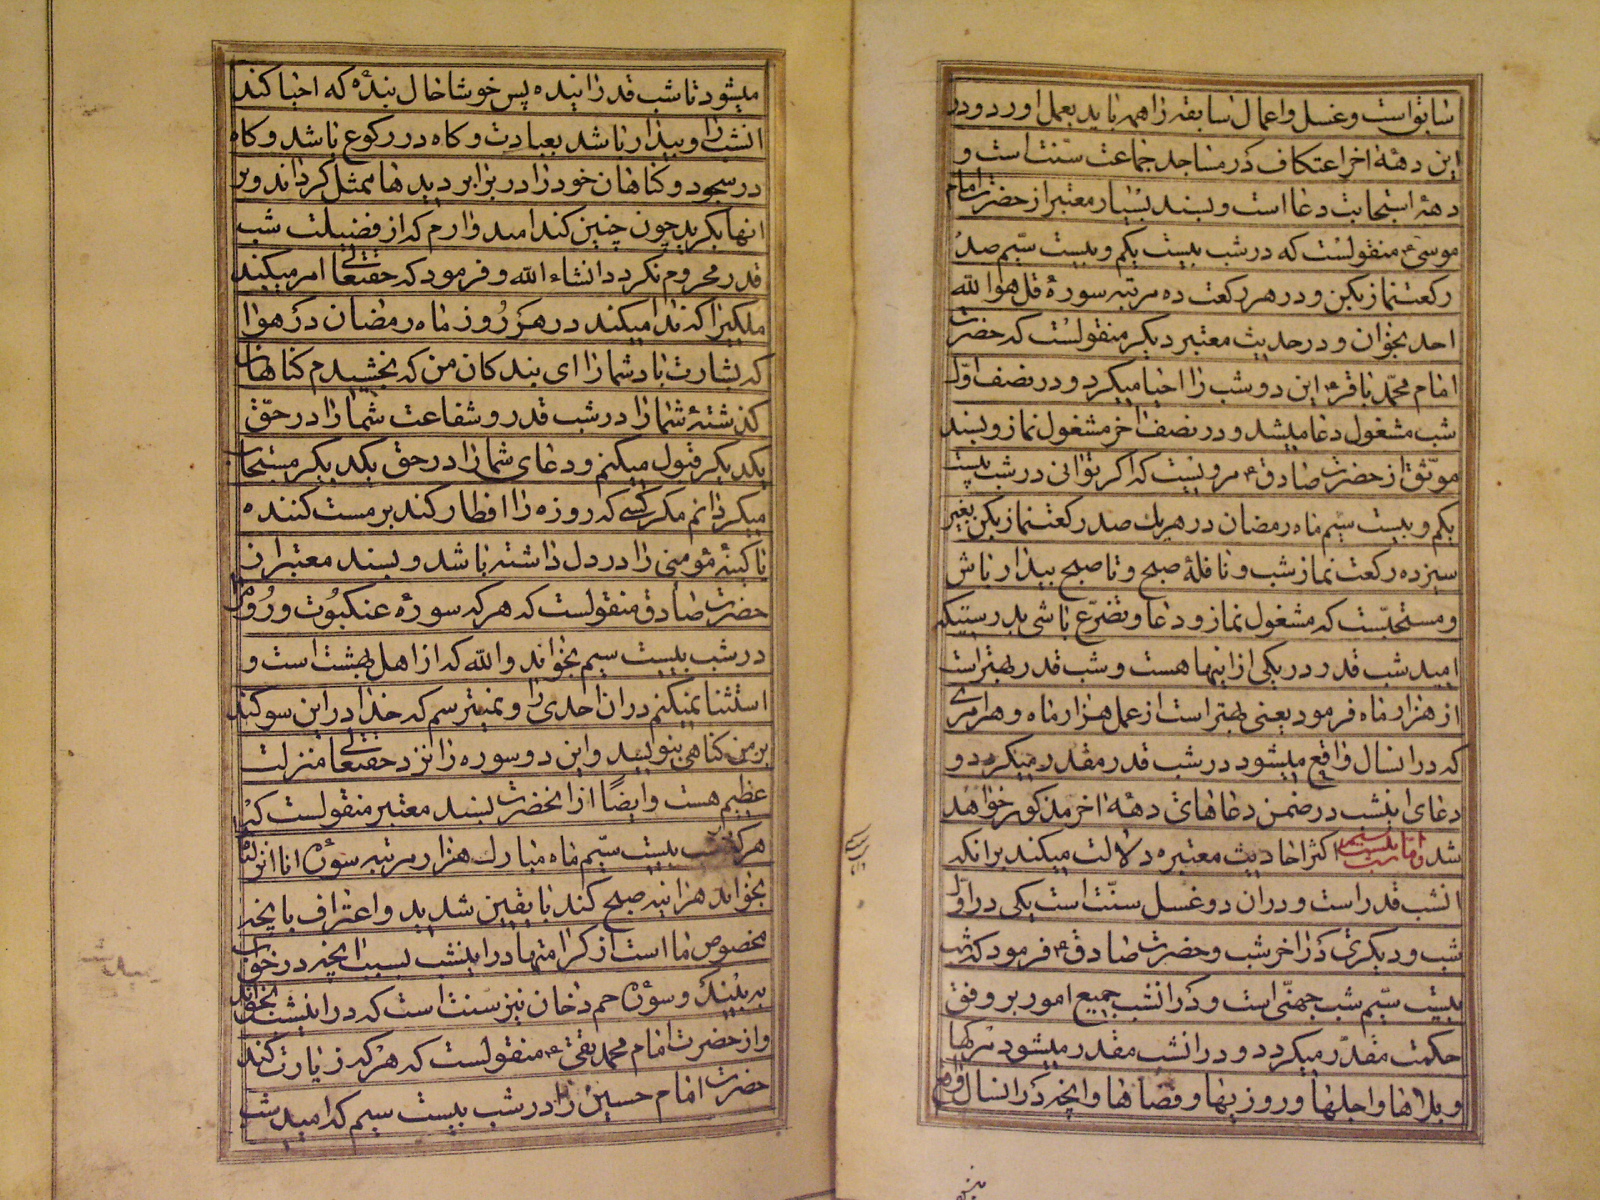 سابق است و غسل و اعمال سابقه را همه باید بعمل اورد و در
این دههٔ اخر اعتکاف در مساجد جماعت سنّت است و
دههٔ استجابت دعا است و بسند بسیار معتبر از حضرت امام
موسی ع منقولست که در شب بیست یکم و بیست سیّم صد
رکعت نماز بکن و در هر رکعت ده مرتبه سورهٔ قل هوا الله
احد بخوان و در حدیث معتبر دیکر منقولست که حضرت
امام محمّد باقر ع این دو شب را احیا میکرد و در نصف اوّل
شب مشغول دعا میشد و در نصف اخر مشغول نماز و بسند
موثّق از حضرت صادق ع مرویست که اکر توانی در شب بیست
یکم و بیست سیّم ماه رمضان در هر یك صد رکعت نماز بکن بغیر
سیزده رکعت نماز شب و نافلهٔ صبح و تا صبح بیدار باش
و مستحبّست که مشغول نماز و دعا و تضرّع باشی بدرستیکه
امید شب قدر در یکی از اینها هست و شب قدر بهتر است
از هزار ماه فرمود یعنی بهتر است از عمل هزار ماه و هر امری
که در انسال واقع میشود در شب قدر مقدر میکردد و
دعای اینشب در ضمن دعاهای دههٔ اخر مذکور خواهد
شد و اما شب بیست سیم اکثر احادیث معتبره دلالت میکند بر انکه
انشب قدر است و در ان دو غسل سنّت است یکی در اوّل
شب و دیکری در اخر شب و حضرت صادق ع فرمود که شب
بیست سیّم شب جهنّی است و در انشب جمیع امور بر وفق
حکمت مقدّر میکردد و در انشب مقدر میشود مرکها
و بلاها و اجلها و روزیها و قضاها و انچه در انسال واقع
میشود تا شب قدر اینده پس خوشا حال بندهٔ که احیا کند
انشب را و بیدار باشد بعبادت و کاه در رکوع باشد و کاه
در سجود و کناهان خود را در برابر دیدها ممثل کرداند و بر
انها بکرید چون چنین کند امیدوارم که از فضیلت شب
قدر محروم نکردد انشاء الله و فرمود که حقتعالی امر میکند
ملکیرا که ندا میکند در هر روز ماه رمضان در هوا
که بشارت باد شما را ای بندکان من که بخشیدم کناهان
کذشتهٔ شما را در شب قدر و شفاعت شما را در حقّ
یکدیکر قبول میکنم و دعای شما را در حق یکدیکر مستجاب
میکردانم مکر کسی که روزه را افطار کند بر مست کننده
یا کینهٔ مؤمنی را در دل داشته باشد و بسند معتبر از
حضرت صادق منقولست که هر که سورهٔ عنکبوت و روم را
در شب بیست سیم بخواند و الله که از اهل بهشت است و
استثنا نمیکنم در ان احدی را و نمیترسم که خدا در این سوکند
بر من کناهی بنویسد و این دو سوره را نزد حقتعالی منزلت
عظیم هست و ایضًا از انحضرت بسند معتبر منقولست که
هر که شب بیست سیّم ماه مبارك هزار مرتبه سورهٔ انا انزلناه
بخواند هر اینه صبح کند با یقین شدید و اعتراف بانچه
مخصوص ما است از کرامتها در اینشب بسبب انچه در خواب
به بیند و سورهٔ حم دخان نیز سنت است که در اینشب بخواند
و از حضرت امام محمد تقی ع منقولست که هر که زیارت کند
حضرت امام حسین را در شب بیست سیم که امید شب